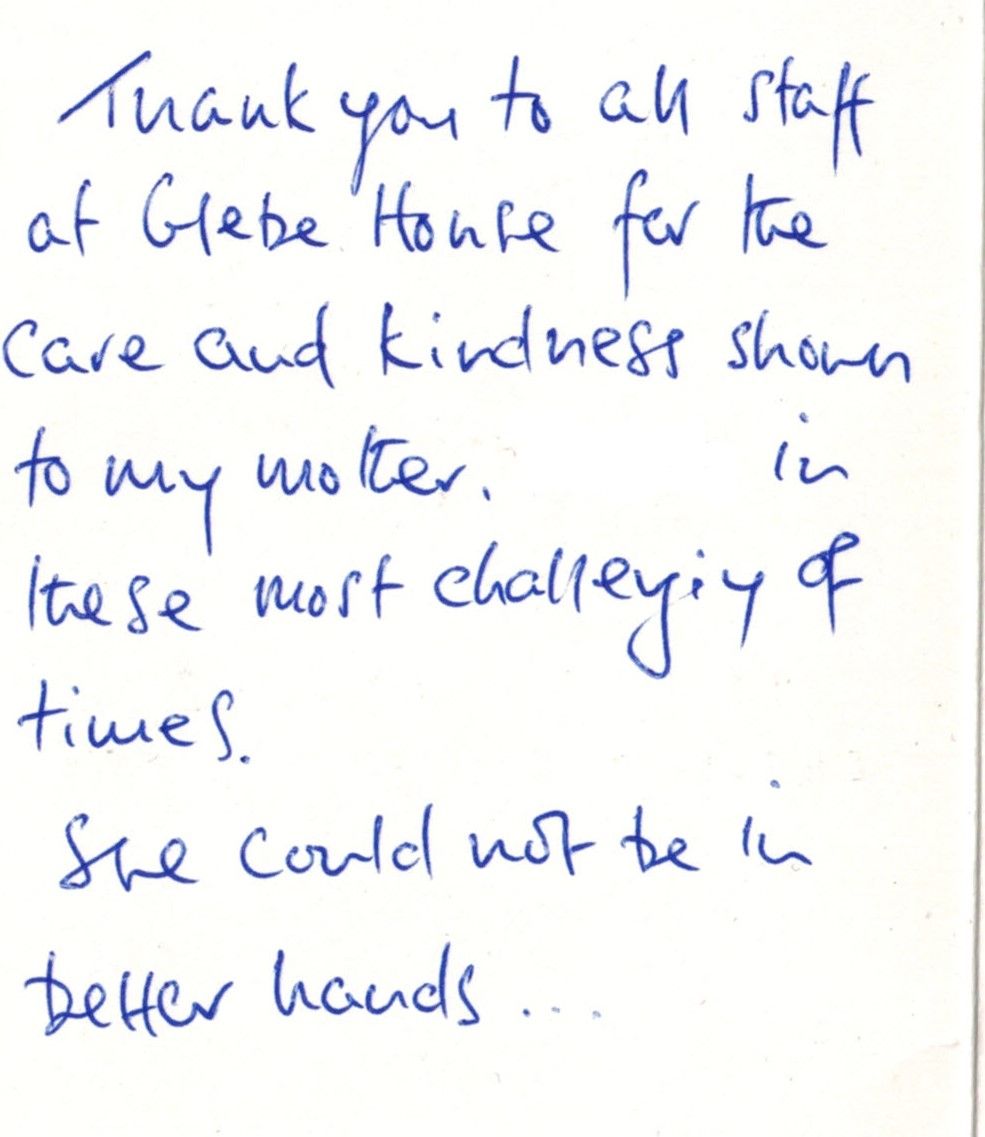 Thank you to all staff
at Glebe House for the
care and kindness shown
to my mother. in
these most challenging of
times.
She could not be in
better hands ...